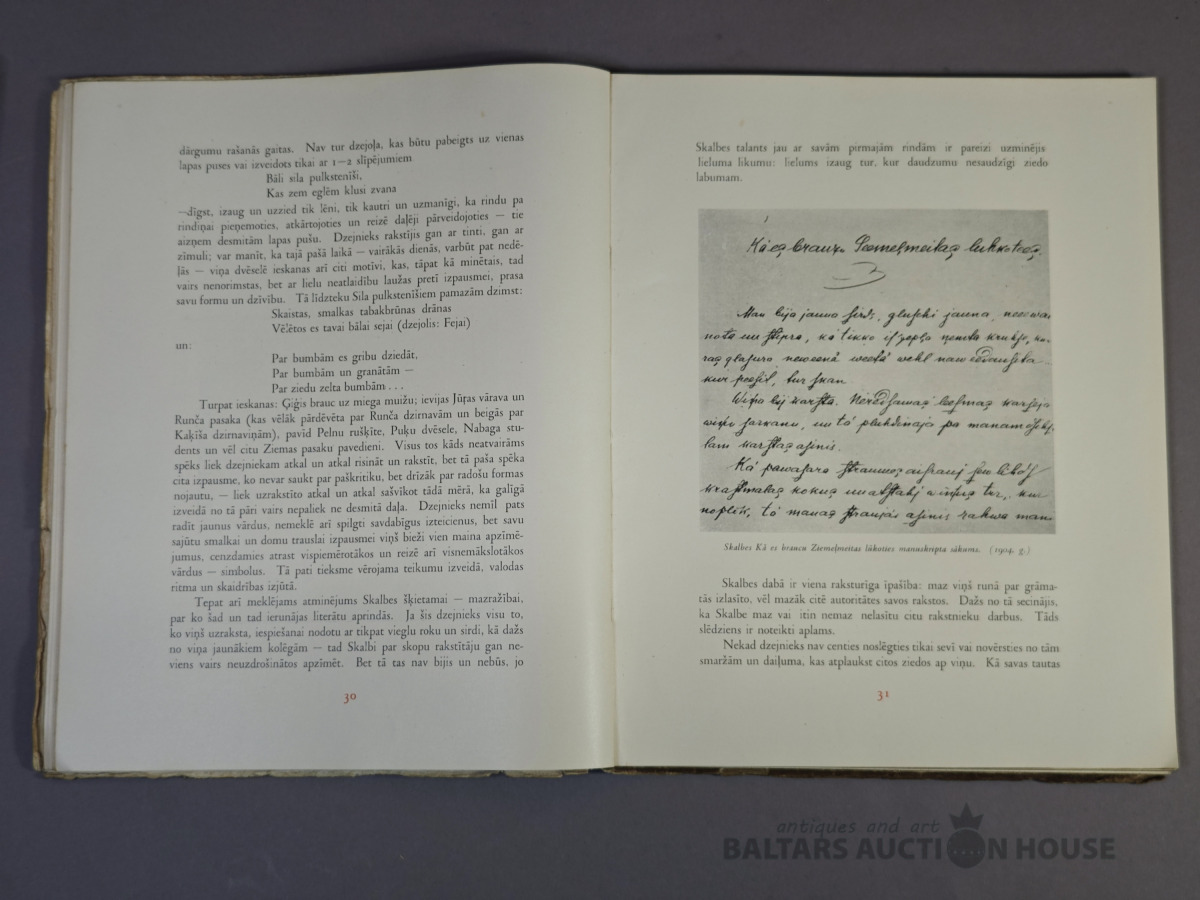 dārgumu rašanās gaitas. Nav tur dzejoļa, kas būtu pabeigts uz vienas
lapas puses vai izveidots tikai ar 1—2 slīpējumiem
Bāli sila pulkstenīši,
Kas zem eglēm klusi zvana
—dīgst, izaug un uzzied tik lēni, tik kautri un uzmanīgi, ka rindu pa
rindiņai pieņemoties, atkārtojoties un reizē daļēji pārveidojoties — tie
aizņem desmitām lapas pušu. Dzejnieks rakstījis gan ar tinti, gan ar
zīmuli; var manīt, ka tajā pašā laikā — vairākās dienās, varbūt pat nedē-
ļās — viņa dvēselē ieskanas arī citi motīvi, kas, tāpat kā minētais, tad
vairs nenorimstas, bet ar lielu neatlaidību laužas pretī izpausmei, prasa
savu formu un dzīvību. Tā līdzteku Sila pulkstenīšiem pamazām dzimst:
Skaistas, smalkas tabakbrūnas drānas
Vēlētos es tavai bālai sejai (dzejolis: Fejai)
un:
Par bumbām es gribu dziedāt,
Par bumbām un granātām —
Par ziedu zelta bumbām . . .
Turpat ieskanas: Ģiģis brauc uz miega muižu; ievijas Jūŗas vārava un
Runča pasaka (kas vēlāk pārdēvēta par Runča dzirnavām un beigās par
Kaķīša dzirnaviņām), pavīd Pelnu rušķīte, Puķu dvēsele, Nabaga stu-
dents un vēl citu Ziemas pasaku pavedieni. Visus tos kāds neatvairāms
spēks liek dzejniekam atkal un atkal risināt un rakstīt, bet tā paša spēka
cita izpausme, ko nevar saukt par paškritiku, bet drīzāk par radošu formas
nojautu, — liek uzrakstīto atkal un atkal sašvīkot tādā mērā, ka galīgā
izveidā no tā pāri vairs nepaliek ne desmitā daļa. Dzejnieks nemīl pats
radīt jaunus vārdus, nemeklē arī spilgti savdabīgus izteicienus, bet savu
sajūtu smalkai un domu trauslai izpausmei viņš bieži vien maina apzīmē-
jumus, cenzdamies atrast vispiemērotākos un reizē arī visnemākslotākos
vārdus — simbolus. Tā pati tieksme vērojama teikumu izveidā, valodas
ritma un skaidrības izjūtā.
Tepat arī meklējams atminējums Skalbes šķietamai — mazražībai,
par ko šad un tad ierunājas literātu aprindās. Ja šis dzejnieks visu to,
ko viņš uzraksta, iespiešanai nodotu ar tikpat vieglu roku un sirdi, kā dažs
no viņa jaunākiem kolēgām — tad Skalbi par skopu rakstītāju gan ne-
viens vairs neuzdrošinātos apzīmēt. Bet tā tas nav bijis un nebūs, jo
30
Skalbes talants jau ar savām pirmajām rindām ir pareizi uzminējis
lieluma likumu: lielums izaug tur, kur daudzumu nesaudzīgi ziedo
labumam.
1
Kā es brauzu Seemeļmeitas luhkotees.
Man bija jauna sirds, gluschi jauna,
Skalbes Kā es braucu Ziemeļmeitas lūkoties manuskripta sākums. (1904. g.)
Skalbes dabā ir viena raksturīga īpašība: maz viņš runā par grāma-
tās izlasīto, vēl mazāk citē autoritātes savos rakstos. Dažs no tā secinājis,
ka Skalbe maz vai itin nemaz nelasītu citu rakstnieku darbus. Tāds
slēdziens ir noteikti aplams.
Nekad dzejnieks nav centies noslēgties tikai sevī vai novērsties no tām
smaržām un daiļuma, kas atplaukst citos ziedos ap viņu. Kā savas tautas
31
antiques and art
BALTARS AUCTION HOUSE